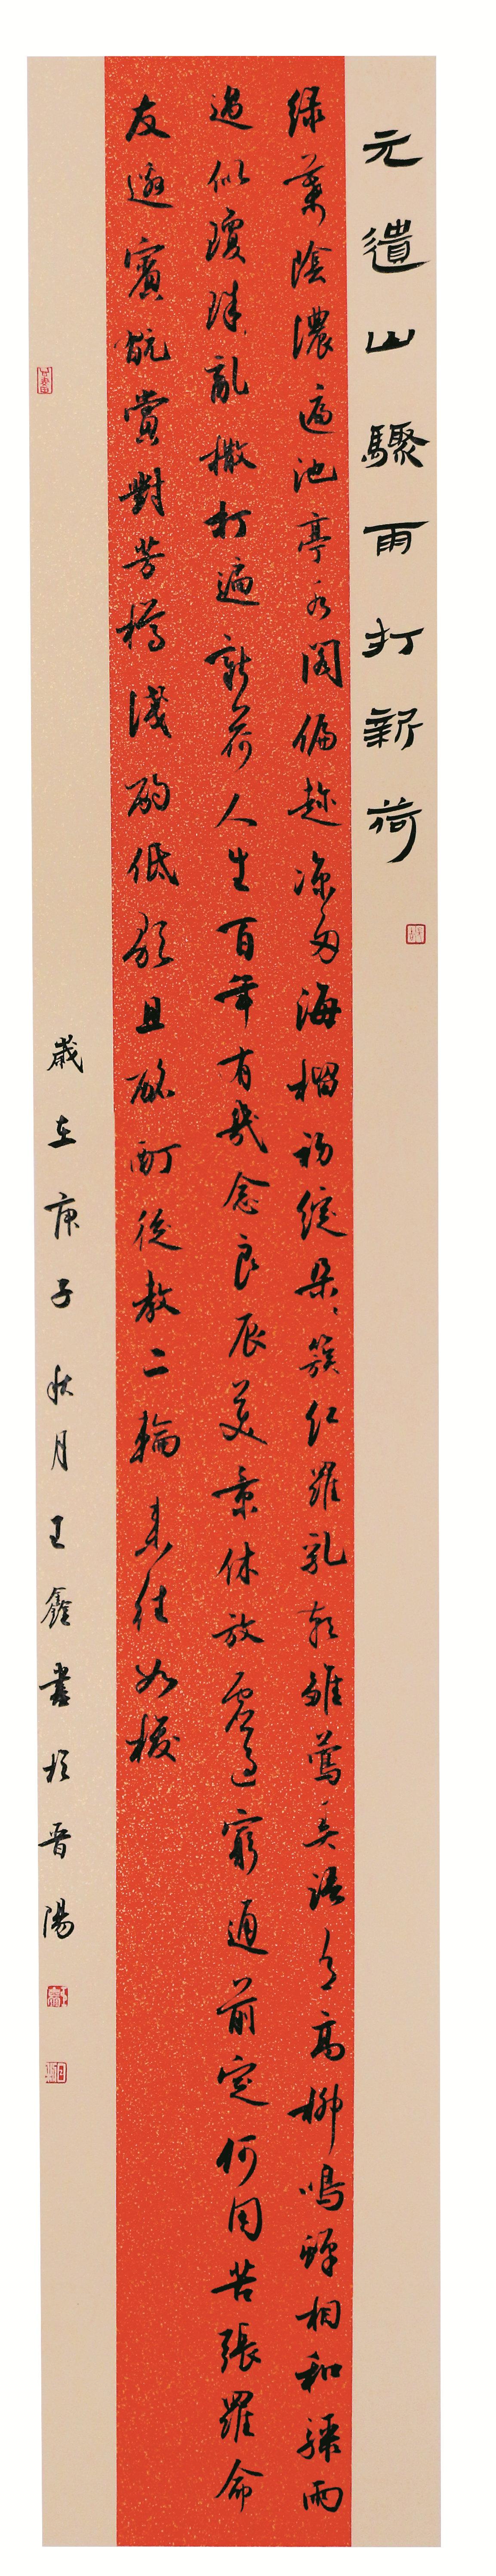 元遺山驟雨打新荷
绿葉陰濃遍池亭水阁偏趁凉多海榴初綻朵々簇红羅乳燕雛鶯弄語有高柳鳴蟬相和驟雨
過似瓊珠亂撒打遍新荷人生百年有幾念良辰美景休放虛過窮通前定何用苦張羅命
友邀賓玩賞對芳樽淺酌低歌且酩酊從教二輪来往如梭
歲在庚子秋月王鑫書於晉陽